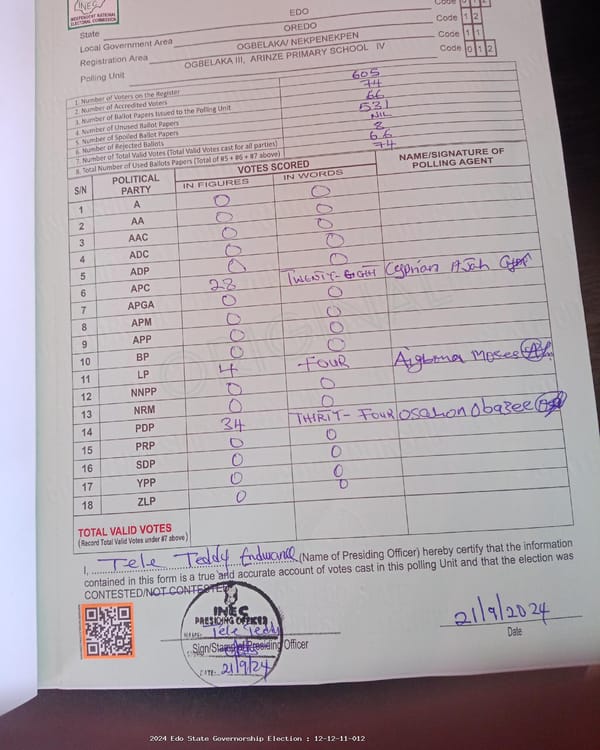 INEC
INDEPENDENT NATIONAL
ELECTORAL COMMISSION
State EDO Code
Local Government Area OREDO Code 1 2
Registration Area OGBELAKA/ NEKPENEKPEN Code 1 1
Polling Unit OGBELAKA III, ARINZE PRIMARY SCHOOL IV Code 0 1 2
1. Number of Voters on the Register 605
2. Number of Accredited Voters 74
3. Number of Ballot Papers Issued to the Polling Unit 66
4. Number of Unused Ballot Papers 531
5. Number of Spoiled Ballot Papers NIL
6. Number of Rejected Ballots 8
7. Number of Total Valid Votes (Total Valid Votes cast for all parties) 66
8. Total Number of Used Ballots Papers (Total of #5 + #6 + #7 above) 74
S/N POLITICAL PARTY VOTES SCORED NAME/SIGNATURE OF POLLING AGENT
IN FIGURES IN WORDS
1 A 0 0
2 AA 0 0
3 AAC 0 0
4 ADC 0 0
5 ADP 0 0
6 APC 28 TWENTY-EIGHT Cyprian Ajah
7 APGA 0 0
8 APM 0 0
9 APP 0 0
10 BP 0 0
11 LP 4 FOUR Moses
12 NNPP 0 0
13 NRM 0 0
14 PDP 34 THIRTY-FOUR Osahon Obazee
15 PRP 0 0
16 SDP 0 0
17 YPP 0 0
18 ZLP 0 0
ORIGINAL
TOTAL VALID VOTES
(Record Total Valid Votes under #7 above)
I, Tele Teddy Endurance (Name of Presiding Officer) hereby certify that the information
contained in this form is a true and accurate account of votes cast in this polling Unit and that the election was
CONTESTED/NOT CONTESTED
INEC
PRESIDING OFFICER
NAME: Tele Teddy
Sign/Stamp of Presiding Officer
DATE: 21/9/24
21/9/2024
Date
2024 Edo State Governorship Election : 12-12-11-012